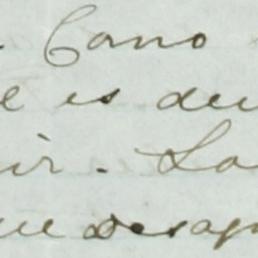 Cano
e es deu
ir. La
ue desap